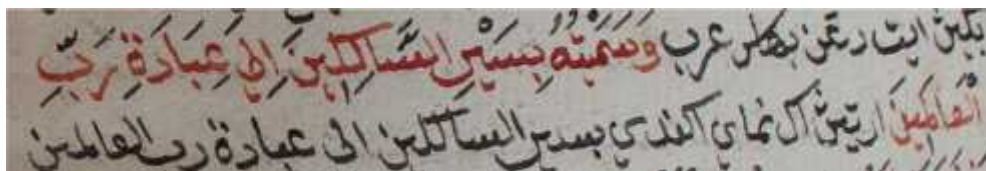 ايت دڠن بهاس عرب وَسَمَّيْتُهُ بِسَيْرِ السَّالِكِينَ إِلَى عِبَادَةِ رَبِّ
الْعَالَمِينَ ارتيڽ اك نماي اكندي بسير السالكين الى عبادة رب العالمين